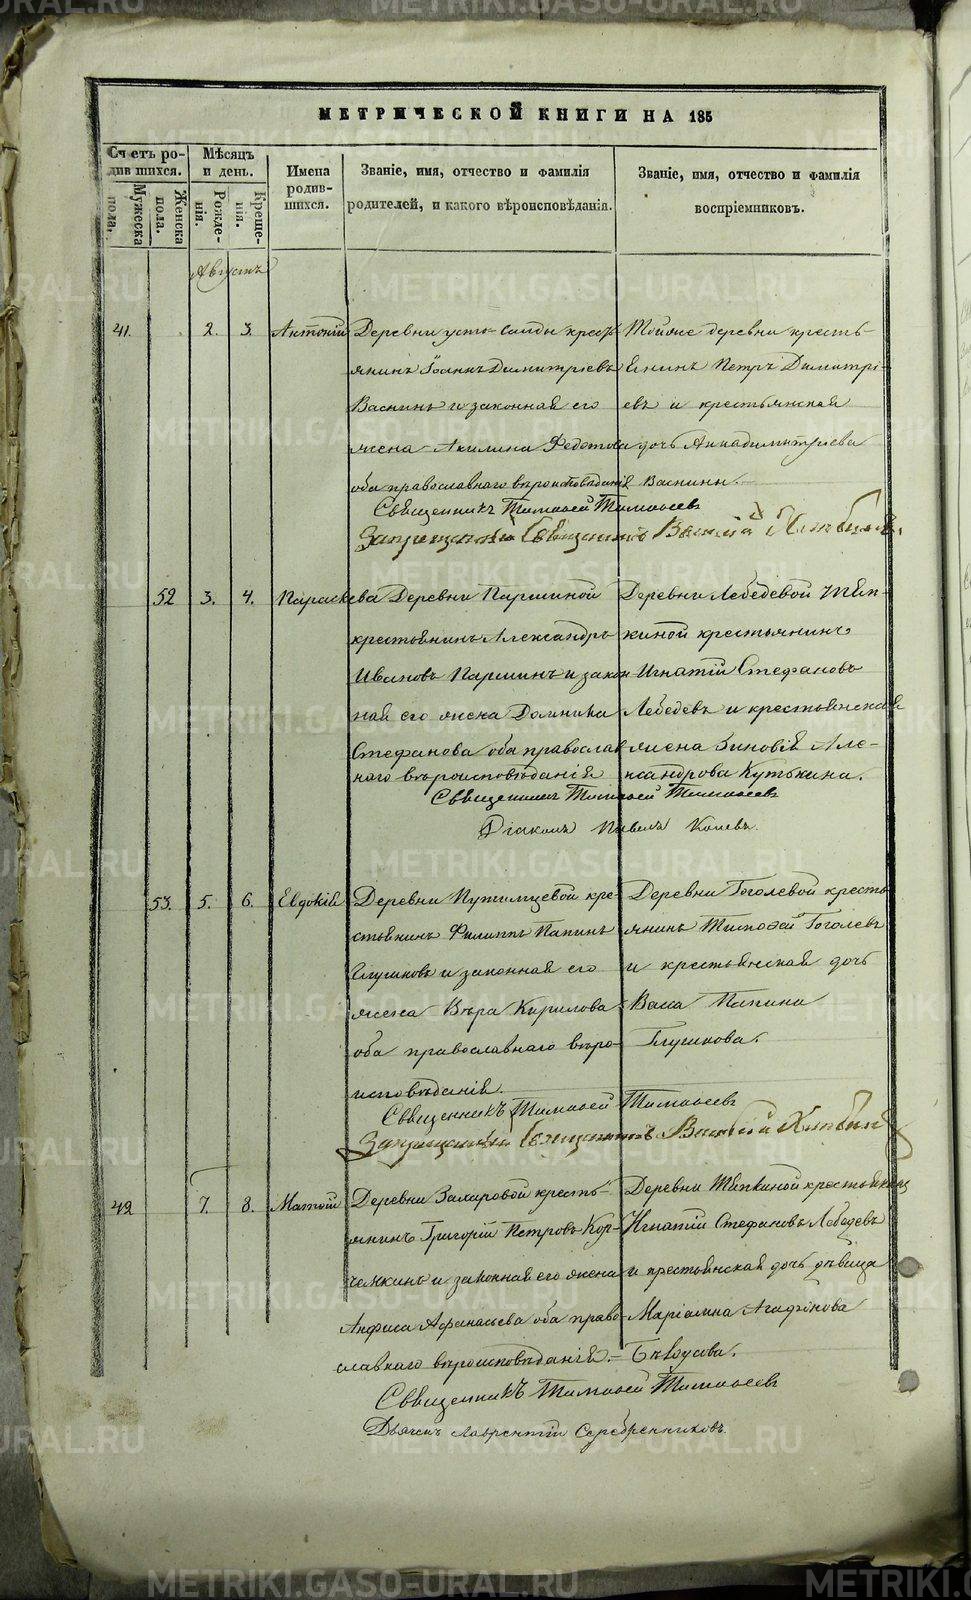 МЕТРИЧЕСКОЙ КНИГИ НА 185
Счетъ родившихся.
Мужеска пола.
Женска пола.
Мѣсяцъ и день.
Рожденія.
Крещенія.
Имена родившихся.
Званіе, имя, отчество и фамилія родителей, и какого вѣроисповѣданія.
Званіе, имя, отчество и фамилія воспріемниковъ.
Августъ
41. 2. 3. Антоній
Деревни усть-Саиды кресть
янинъ Іоаннъ Димитріевъ
Васнинъ и законная его
жена Акилина Федотова
оба православнаго вѣроисповѣданія
Тойже деревни кресть-
янинъ Петръ Димитрі-
евъ и крестьянская
дочь Анна Димитріева
Васнины.
Священникъ Тимоѳей Тимоѳеевъ
Запрещенный Священникъ Василій
52 3. 4. Параскева
Деревни Паршиной
крестьянинъ Александръ
Ивановъ Паршинъ и закон
ная его жена Домника
Стефанова оба православ
наго вѣроисповѣданія
Деревни Лебедевой Тяп-
киной крестьянинъ
Игнатій Стефановъ
Лебедевъ и крестьянская
жена Зиновія Але-
ксандрова Кутькина.
Священникъ Тимоѳей Тимоѳеевъ
Діаконъ Павелъ
53. 5. 6. Евдокія
Деревни Путимцевой кре-
стьянинъ Филиппъ Папинъ
Глушковъ и законная его
жена Вѣра Кирилова
оба православнаго вѣро-
исповѣданія.
Деревни Гоголевой кресть
янинъ Тимоѳей Гоголевъ
и крестьянская дочь
Васса Папина
Глушкова.
Священникъ Тимоѳей Тимоѳеевъ
Запрещенный Священникъ Василій
42 7. 8. Матѳій
Деревни Захаровой кресть-
янинъ Григорій Петровъ Кор-
чемкинъ и законная его жена
Анфиса Афанасьева оба право-
славнаго вѣроисповѣданія.
Деревни Тяпкиной крестьянинъ
Игнатій Стефановъ Лебедевъ
и крестьянская дочь дѣвица
Маріамна Агафонова
Бѣлоусова.
Священникъ Тимоѳей Тимоѳеевъ
Дьячекъ Лаврентій Серебренниковъ.
METRIKI.GASO-URAL.RU